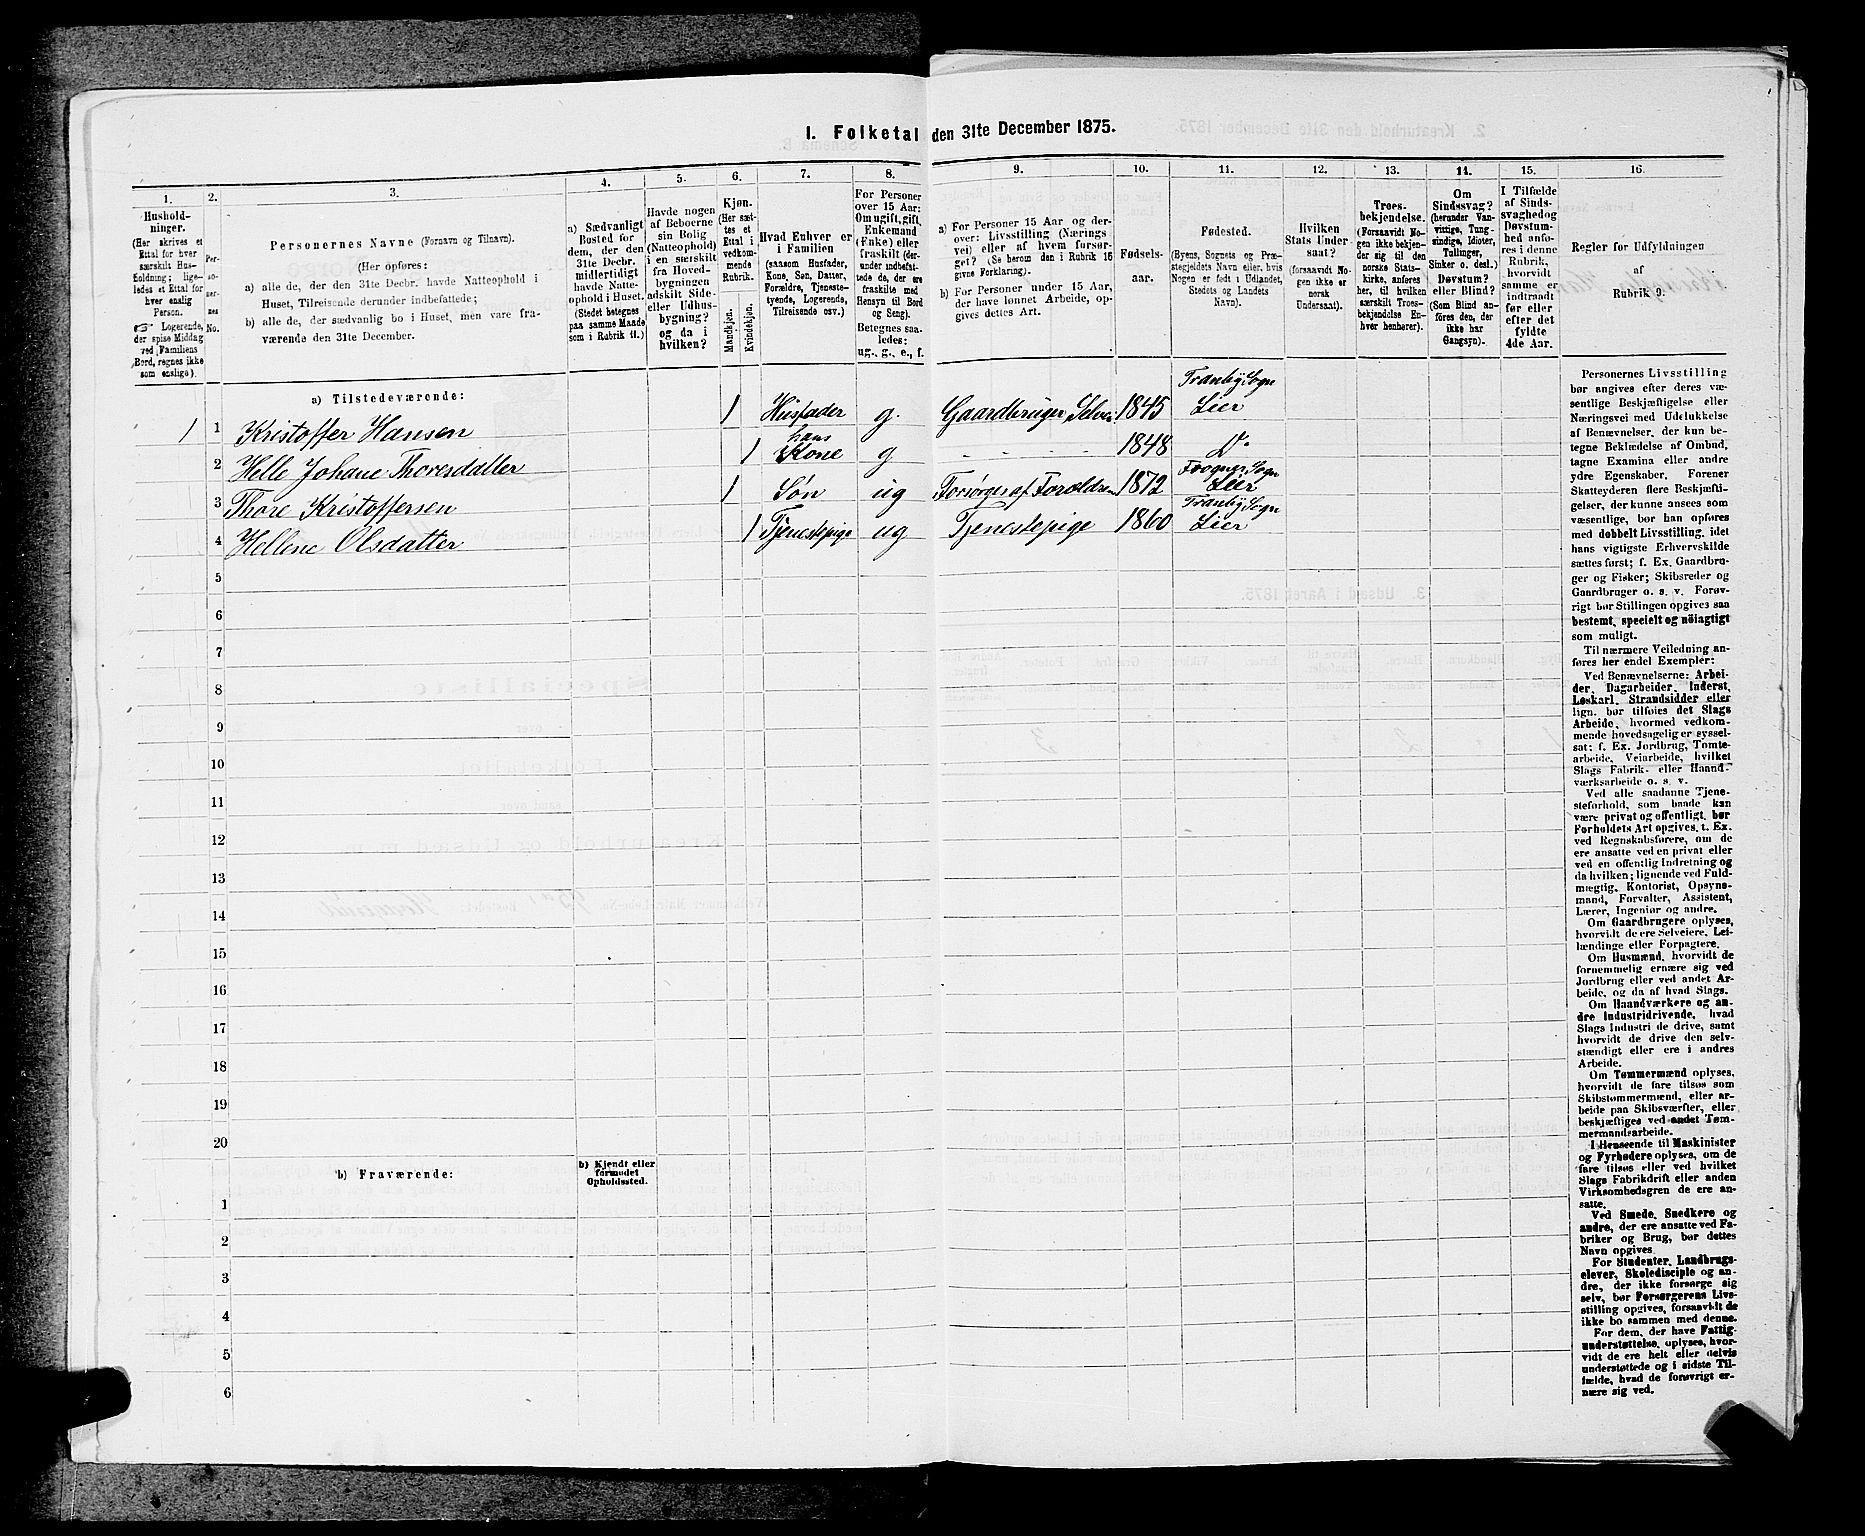 I. Folketal den 31te December 1875.
1.
Hushold-
ninger.
(Her skrives et
Ettal for hver
særskilt Hus-
holdning; lige-
ledes et Ettal for
hver enslig
Person.
Logerende,
der spise Middag
ved Familiens
Bord, regnes ikke
som enslige).
2.
Per-
so-
ner-
nes
No.
3.
Personernes Navne (Fornavn og Tilnavn).
(Her opføres:
a) alle de, der den 31te Decbr. havde Natteophold i
Huset, Tilreisende derunder indbefattede;
b) alle de, der sædvanlig bo i Huset, men vare fra-
værende den 31te December.
4.
a) Sædvanligt
Bosted for
dem, der den
31te Decbr.
midlertidigt
havde Natte-
ophold i Huset.
(Stedet betegnes
paa samme Maade
som i Rubrik 11.)
5.
Havde nogen
af Beboerne
sin Bolig
(Natteophold)
i en særskilt
fra Hoved-
bygningen
adskilt Side-
eller Udhus-
bygning?
og da i
hvilken?
6.
Kjøn.
(Her sæt-
tes et
Ettal i
vedkom-
mende
Rubrik.
Mandkjøn.
Kvindekjøn.
7.
Hvad Enhver er
i Familien
(saasom Husfader,
Kone, Søn, Datter,
Forældre, Tjeneste-
tyende, Logerende,
Tilreisende osv.)
8.
For Personer
over 15 Aar:
Om ugift, gift,
Enkemand
(Enke) eller
fraskilt (der-
under indbefat-
tede de, der ere
fraskilte med
Hensyn til Bord
og Seng).
Betegnes saa-
ledes:
ug., g., e., f.
9.
a) For Personer 15 Aar og der-
over: Livsstilling (Nærings-
vei) eller af hvem forsør-
get? (Se herom den i Rubrik 16
givne Forklaring).
b) For Personer under 15 Aar,
der have lønnet Arbeide, op-
gives dettes Art.
10.
Fødsels-
aar.
11.
Fødested.
(Byens, Sognets og Præ-
stegjeldets Navn eller, hvis
Nogen er født i Udlandet,
Stedets og Landets
Navn).
12.
Hvilken
Stats Under-
saat?
(forsaavidt No-
gen ikke er
norsk
Undersaat).
13.
Troes-
bekjendelse.
(Forsaavidt No-
gen ikke bekjen-
der sig til den
norske Stats-
kirke, anføres
her, til hvilken
særskilt Troes-
bekjendelse En-
hver henhører).
14.
Om
Sindssvag?
(herunder Van-
vittige, Tung-
sindige, Idioter,
Tullinger,
Sinker o. desl.)
Døvstum?
eller Blind?
(Som Blind an-
føres den, der
ikke har
Gangsyn).
15.
I Tilfælde
af Sinds-
svaghed og
Døvstum-
hed anfø-
res i denne
Rubrik,
hvorvidt
samme er
indtraadt
før eller
efter det
fyldte
4de Aar.
16
Regler for Udfyldningen
af
Rubrik 9.
a) Tilstedeværende:
1 1 Kristoffer Hansen 1 Husfader g. Gaardbruger, Selvei 1845 Tranby Sogn Lier
2 Helle Johane Thoresdatter 1 hans Kone g 1848 Do
3 Thore Kristoffersen 1 Søn ug Forsørges af Forældrene 1872 Frogner Sogn Lier
4 Hellene Olsdatter 1 Tjenestepige ug Tjenestepige 1860 Tranby Sogn Lier
5
6
7
8
9
10
11
12
13
14
15
16
17
18
19
20
b) Fraværende:
b) Kjendt eller
formodet
Opholdssted.
1
2
3
4
5
6
Personernes Livsstilling
bør angives efter deres væ-
sentlige Beskjæftigelse eller
Næringsvei med Udelukkelse
af Benævnelser, der kun be-
tegne Beklædelse af Ombud,
tagne Examina eller andre
ydre Egenskaber. Forener
Skatteyderen flere Beskjæfti-
gelser, der kunne ansees som
væsentlige, bør han opføres
med dobbelt Livsstilling, idet
hans vigtigste Erhvervskilde
sættes først; f. Ex. Gaardbru-
ger og Fisker; Skibsreder og
Gaardbruger o. s. v. Forøv-
rigt bør Stillingen opgives saa
bestemt, specielt og nöiagtigt
som muligt.
Til nærmere Veiledning an-
føres her endel Exempler:
Ved Benævnelserne: Arbei-
der, Dagarbeider, Inderst,
Løskarl, Strandsidder eller
lign. bør tilføies det Slags
Arbeide, hvormed vedkom-
mende hovedsagelig er syssel-
sat; f. Ex. Jordbrug, Tomte-
arbeide, Veiarbeide, hvilket
Slags Fabrik- eller Haand-
værksarbeide o. s. v.
Ved alle saadanne Tjene-
steforhold, som baade kan
være privat og offentligt, bør
Forholdets Art opgives, t. Ex.
ved Regnskabsførere, om de
ere ansatte ved en privat eller
ved en offentlig Indretning og
da hvilken; lignende ved Fuld-
mægtig, Kontorist, Opsyns-
mand, Forvalter, Assistent,
Lærer, Ingeniør og andre.
Om Gaardbrugere oplyses,
hvorvidt de ere Selveiere, Lei-
lændinge eller Forpagtere.
Om Husmænd, hvorvidt de
fornemmelig ernære sig ved
Jordbrug eller ved andet Ar-
beide, og da af hvad Slags.
Om Haandværkere og an-
dre Industridrivende, hvad
Slags Industri de drive, samt
hvorvidt de drive den selv-
stændigt eller ere i andres
Arbeide.
Om Tømmermænd oplyses,
hvorvidt de fare tilsøs som
Skibstømmermænd, eller ar-
beide paa Skibsværfter, eller
beskjæftiges ved andet Tøm-
mermandsarbeide.
I Henseende til Maskinister
og Fyrbødere oplyses, om de
fare tilsøs eller ved hvilket
Slags Fabrikdrift eller anden
Virksomhedsgren de ere an-
satte.
Ved Smede, Snedkere og
andre, der ere ansatte ved Fa-
briker og Brug, bør dettes
Navn opgives.
For Studenter, Landbrugs-
elever, Skoledisciple og an-
dre, der ikke forsørge sig
selv, bør Forsørgerens Livs-
stilling opgives, forsaavidt de
ikke bo sammen med denne.
For dem, der have Fattig-
understøttelse, oplyses, hvor-
vidt de ere helt eller delvis
understøttede og i sidste Til-
fælde, hvad de forøvrigt er-
nære sig ved.